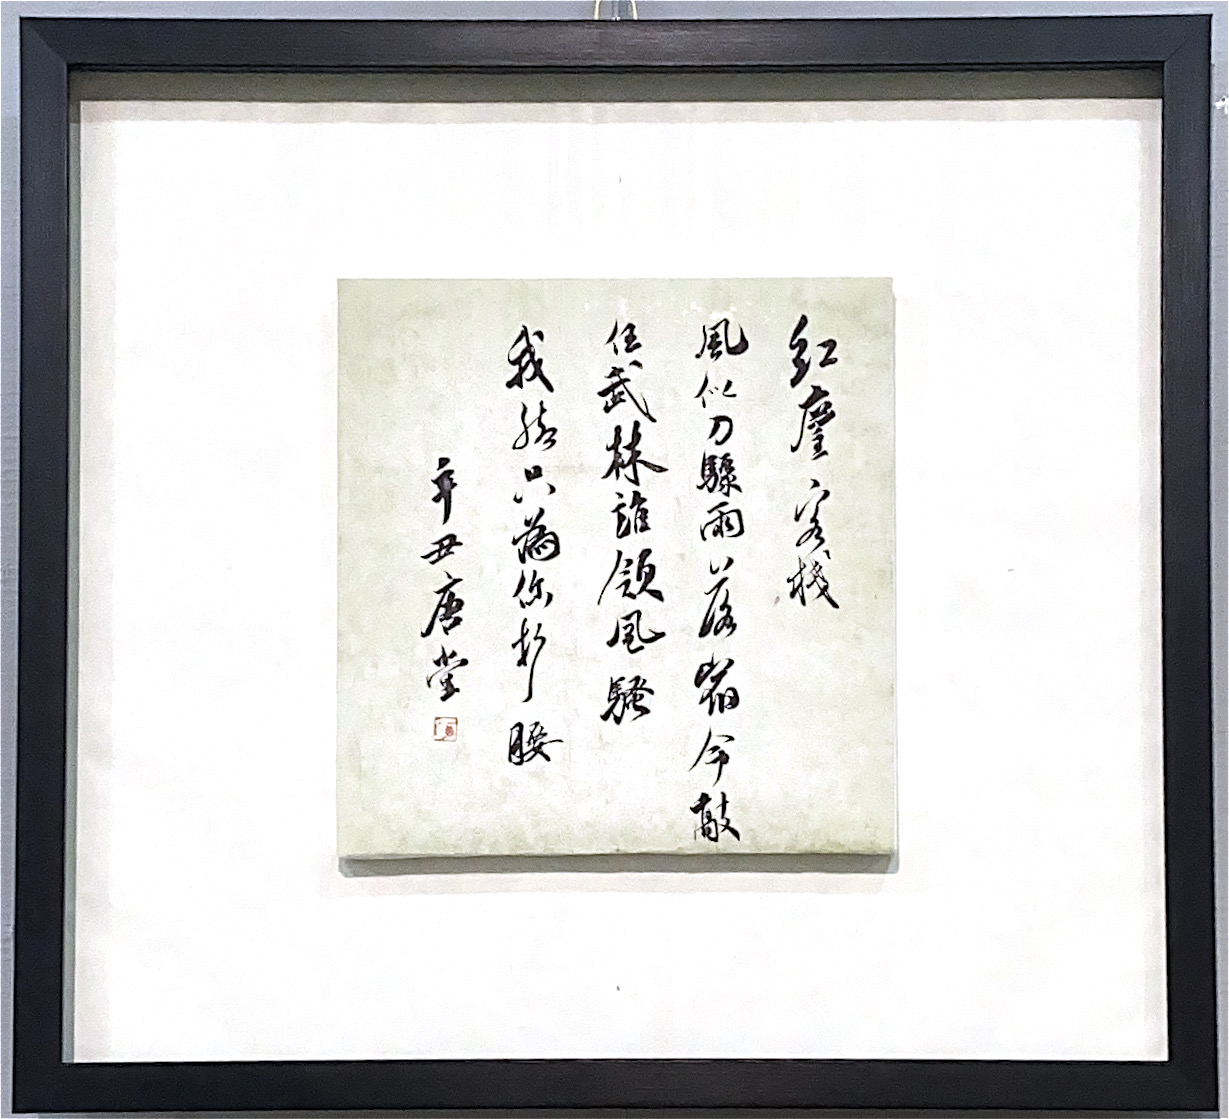 紅塵客棧
風似刀驟雨落宿命敲
任武林誰領風騷
我卻只為你折腰
辛丑唐堂